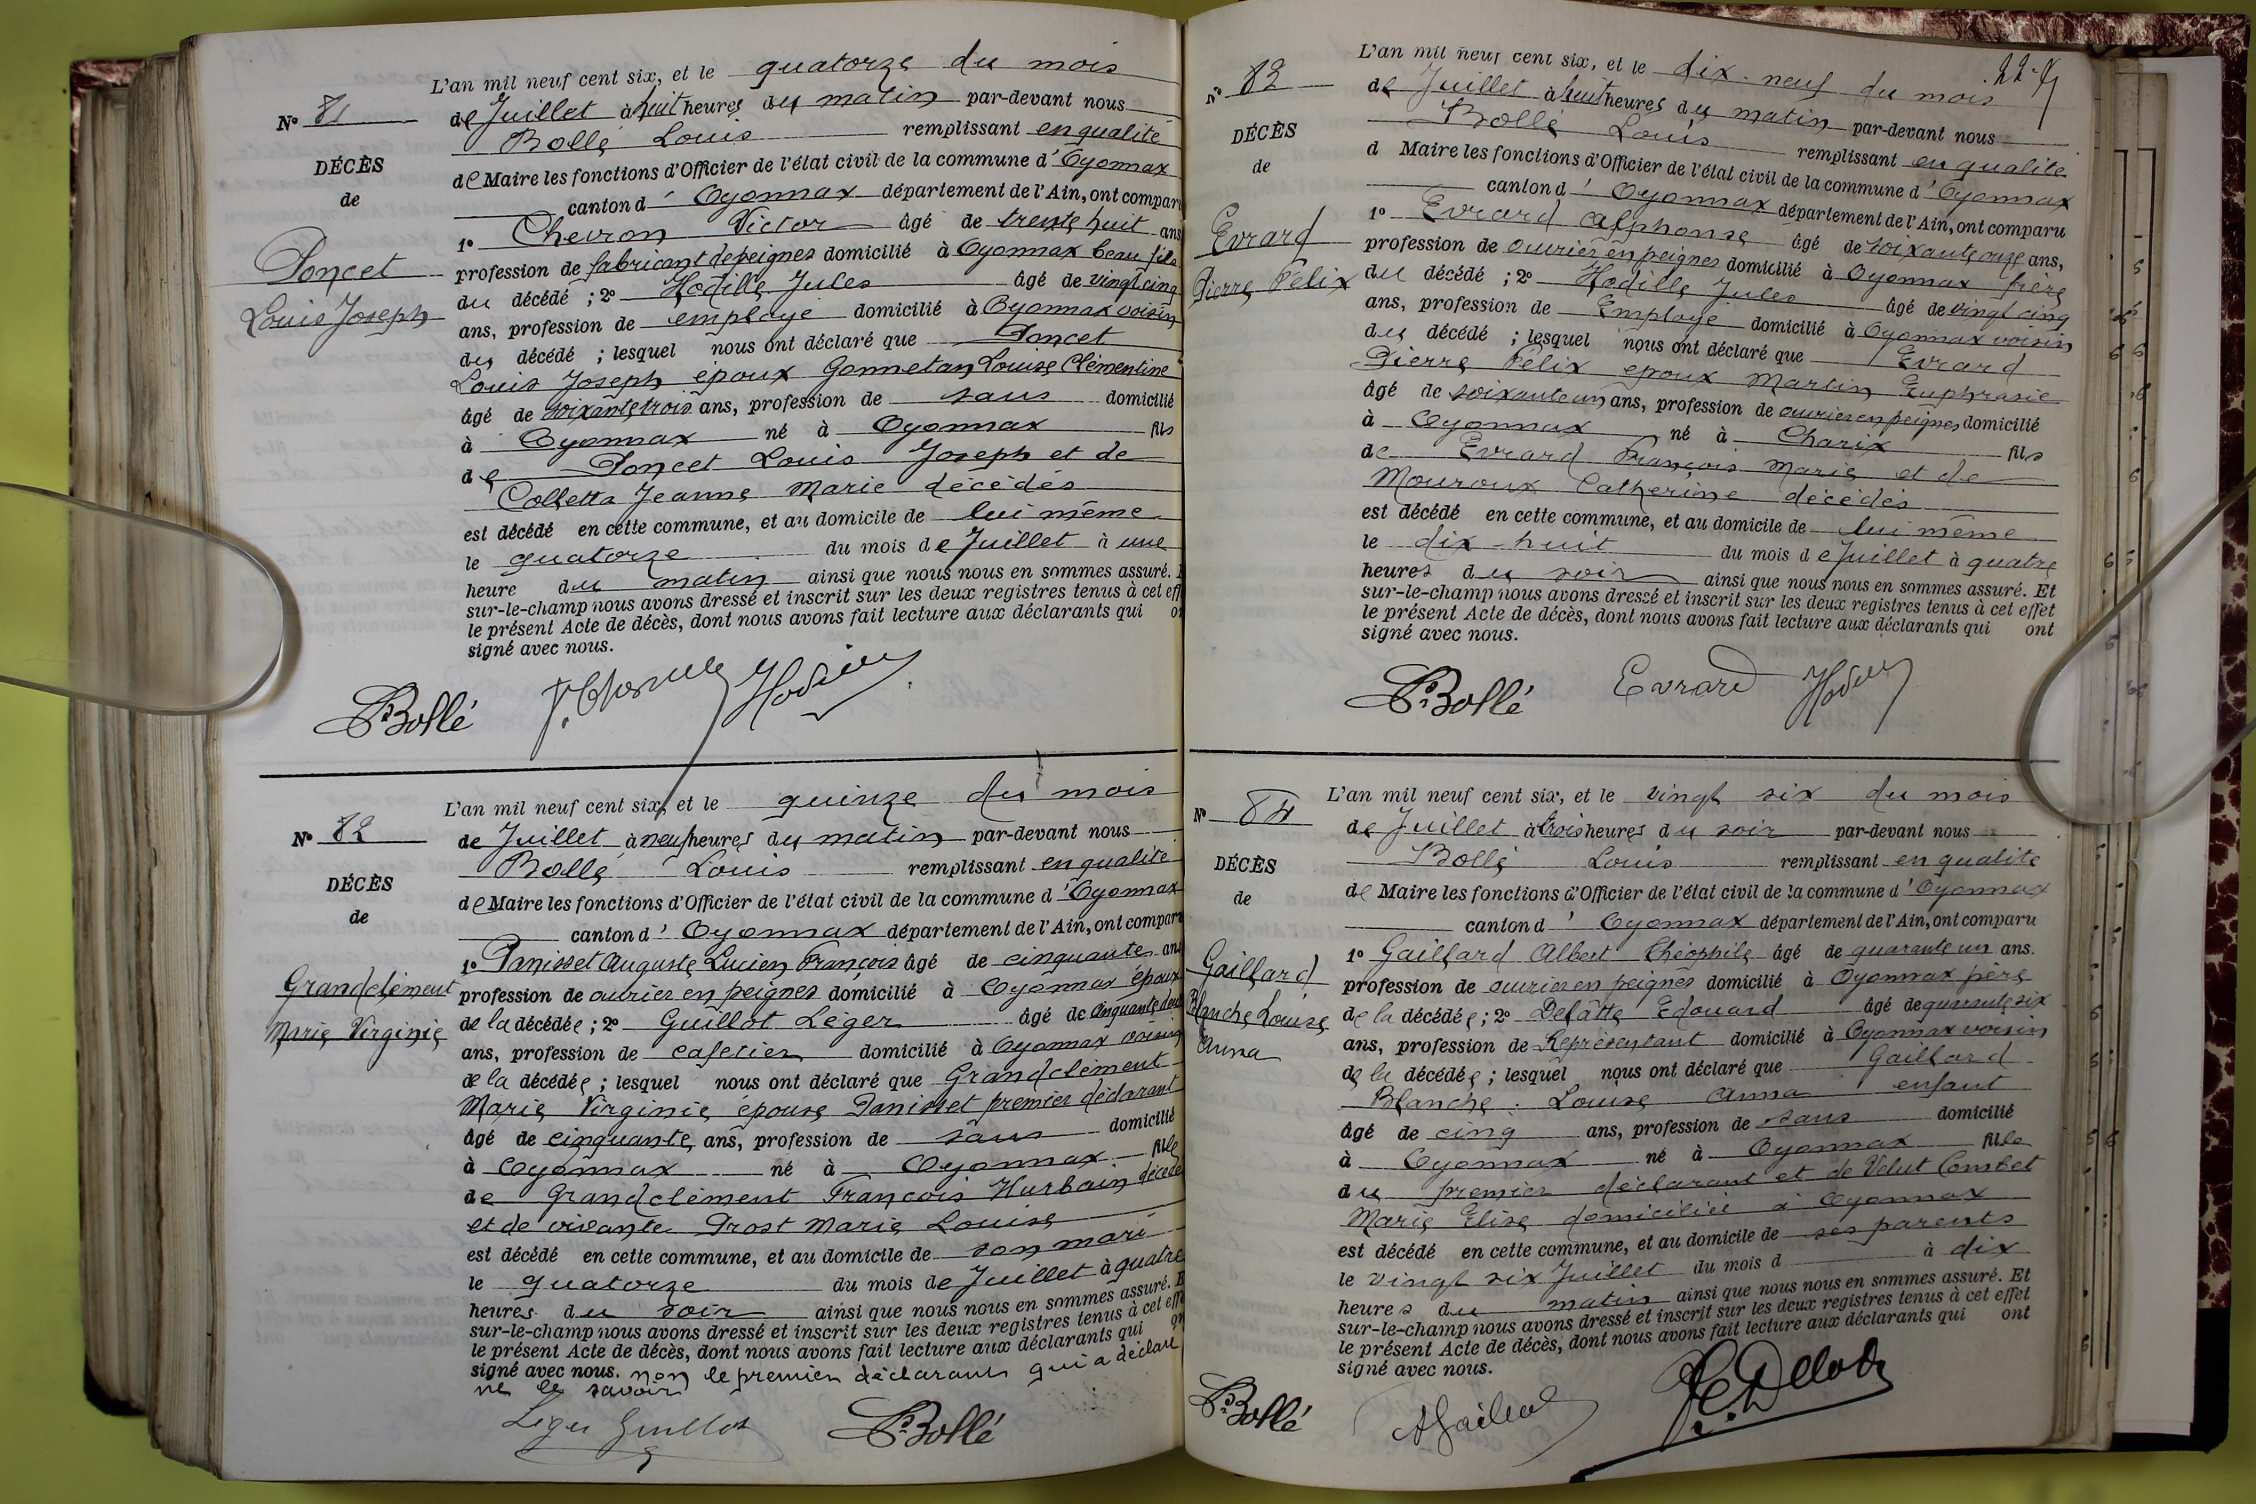 L'an mil neuf cent six, et le quatorze du mois
N° 81
de Juillet à huit heures du matin par-devant nous
Bollé Louis remplissant en qualité
DÉCÈS
de Maire les fonctions d'Officier de l'état civil de la commune d'Oyonnax
de
canton d'Oyonnax département de l'Ain, ont comparu
1° Chevron Victor âgé de trente huit ans
Poncet
profession de fabricant de peignes domicilié à Oyonnax beau fils
Louis Joseph
du décédé ; 2° Hodille Jules âgé de vingt cinq
ans, profession de employé domicilié à Oyonnax voisin
du décédé ; lesquel nous ont déclaré que Poncet
Louis Joseph époux Gonnetan Louise Clémentine
âgé de soixante trois ans, profession de sans domicilié
à Oyonnax né à Oyonnax fils
de Poncet Louis Joseph et de
Colletta Jeanne Marie décédés
est décédé en cette commune, et au domicile de lui même
le quatorze du mois de Juillet à une
heure du matin ainsi que nous nous en sommes assuré.
sur-le-champ nous avons dressé et inscrit sur les deux registres tenus à cet eff
le présent Acte de décès, dont nous avons fait lecture aux déclarants qui on
signé avec nous.
L. Bollé Hodille
L'an mil neuf cent six, et le quinze du mois
N° 82
de Juillet à neuf heures du matin par-devant nous
Bollé Louis remplissant en qualité
DÉCÈS
de Maire les fonctions d'Officier de l'état civil de la commune d'Oyonnax
de
canton d'Oyonnax département de l'Ain, ont comparu
1° Panisset Auguste Lucien François âgé de cinquante ans
Grandclément
profession de ouvrier en peignes domicilié à Oyonnax époux
Marie Virginie
de la décédée ; 2° Guillot Léger âgé de cinquante deux
ans, profession de cafetier domicilié à Oyonnax voisin
de la décédée ; lesquel nous ont déclaré que Grandclément
Marie Virginie épouse Panisset premier déclarant
âgé de cinquante ans, profession de sans domicilié
à Oyonnax né à Oyonnax fille
de Grandclément François Hurbain décédé
et de vivante Prost Marie Louise
est décédé en cette commune, et au domicile de son mari
le quatorze du mois de Juillet à quatre
heures du soir ainsi que nous nous en sommes assuré. E
sur-le-champ nous avons dressé et inscrit sur les deux registres tenus à cet effe
le présent Acte de décès, dont nous avons fait lecture aux déclarants qui on
signé avec nous. non le premier déclarant qui a déclaré
ne le savoir
Léger Guillot L. Bollé
L'an mil neuf cent six, et le dix-neuf du mois
N° 83
de Juillet à huit heures du matin par-devant nous
Bollé Louis remplissant en qualité
DÉCÈS
d Maire les fonctions d'Officier de l'état civil de la commune d'Oyonnax
de
canton d'Oyonnax département de l'Ain, ont comparu
1° Evrard Alphonse âgé de soixante onze ans,
Evrard
profession de ouvrier en peignes domicilié à Oyonnax frère
Pierre Félix
du décédé ; 2° Hodille Jules âgé de vingt cinq
ans, profession de Employé domicilié à Oyonnax voisin
du décédé ; lesquel nous ont déclaré que Evrard
Pierre Félix époux Martin Euphrasie
âgé de soixante un ans, profession de ouvrier en peignes domicilié
à Oyonnax né à Charix fils
de Evrard François Marie et de
Mouroux Catherine décédés
est décédé en cette commune, et au domicile de lui même
le dix-huit du mois de Juillet à quatre
heures du soir ainsi que nous nous en sommes assuré. Et
sur-le-champ nous avons dressé et inscrit sur les deux registres tenus à cet effet
le présent Acte de décès, dont nous avons fait lecture aux déclarants qui ont
signé avec nous.
L. Bollé Evrard Hodille
L'an mil neuf cent six, et le vingt six du mois
N° 84
de Juillet à trois heures du soir par-devant nous
Bollé Louis remplissant en qualité
DÉCÈS
de Maire les fonctions d'Officier de l'état civil de la commune d'Oyonnax
de
canton d'Oyonnax département de l'Ain, ont comparu
1° Gaillard Albert Théophile âgé de quarante un ans.
Gaillard
profession de ouvrier en peignes domicilié à Oyonnax père
Blanche Louise
de la décédée ; 2° Delatte Edouard âgé de quarante six
Anna
ans, profession de Représentant domicilié à Oyonnax voisin
de la décédée ; lesquel nous ont déclaré que Gaillard
Blanche Louise Anna enfant
âgé de cinq ans, profession de sans domicilié
à Oyonnax né à Oyonnax fille
du premier déclarant et de Velut Combet
Marie Elise domiciliée à Oyonnax
est décédé en cette commune, et au domicile de ses parents
le vingt six Juillet du mois d à dix
heures du matin ainsi que nous nous en sommes assuré. Et
sur-le-champ nous avons dressé et inscrit sur les deux registres tenus à cet effet
le présent Acte de décès, dont nous avons fait lecture aux déclarants qui ont
signé avec nous.
L. Bollé A Gaillard